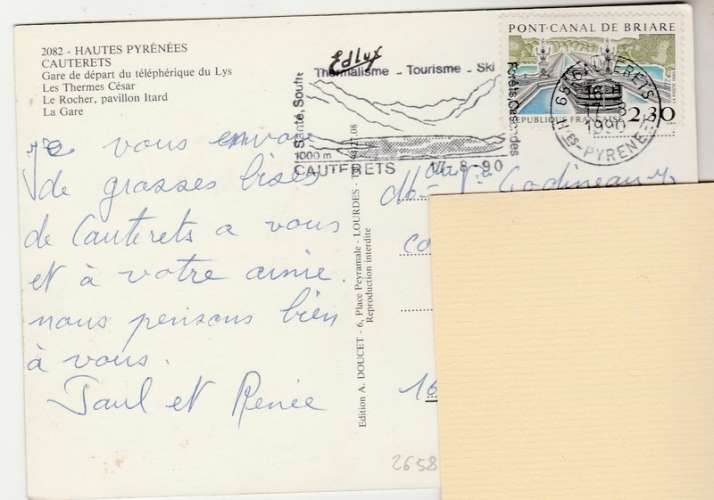 2082 - HAUTES PYRÉNÉES
CAUTERETS
Gare de départ du téléphérique du Lys
Les Thermes César
Le Rocher, pavillon Itard
La Gare
Thermalisme - Tourisme - Ski
Santé, Source
Forêts, Cascades
1000 m
CAUTERETS 17-8-90
PONT-CANAL DE BRIARE
RÉPUBLIQUE FRANÇAISE 2,30
65 CAUTERETS
1990
HTES-PYRENEES
Je vous envoie
de grosses bises
de Cauterets a vous
et à votre amie.
nous pensons bien
à vous.
Paul et Renée
Edition A. DOUCET - 6, Place Peyramale - LOURDES
Reproduction interdite
16
2658